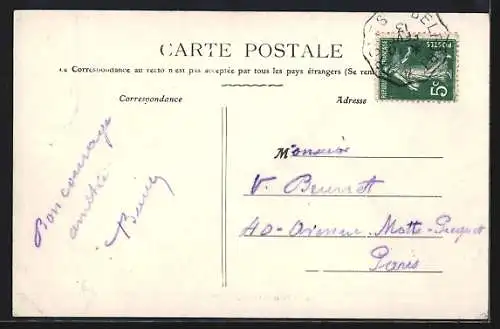 CARTE POSTALE
La Correspondance au recto n'est pas acceptée par tous les pays étrangers (Se ren
Correspondance
Adresse
Bon courage
amitié
Monsieur
V. Beunet
40 - Avenue Motte-Picquet
Paris
RÉPUBLIQUE FRANÇAISE
POSTES
5c